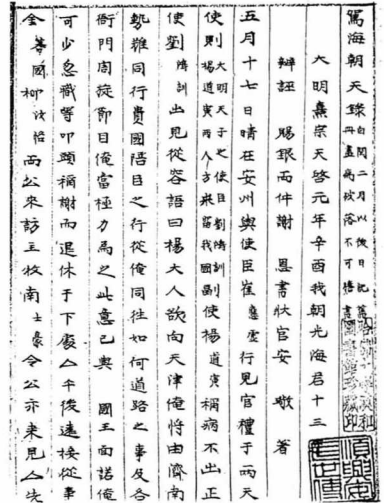 駕海朝天錄自閏二月以後日記舊冊盡爲落不可得書
大明熹宗天啓元年辛酉我朝光海君十三
辨誣 賜銀兩件謝 恩書狀官安 璥 著
五月十七日晴在安州與使臣崔應虛行見官禮于兩天
使則大明天子之使臣劉鴻訓楊道寅兩人方來留我國副使楊道寅稱病不出正
使劉鴻訓出見從容語曰楊大人欲向天津俺將由濟南
執難同行貴國陪臣之行從俺同往如何道路之事及各
衙門周旋節目俺當極力爲之此意已與 國王面諾俺
可少忽職等叩頭稱謝而退休于下處△午後遠接從事
金蓍國柳汝恪兩公來訪主牧南士豪令公亦來見△先
順興安氏世傳